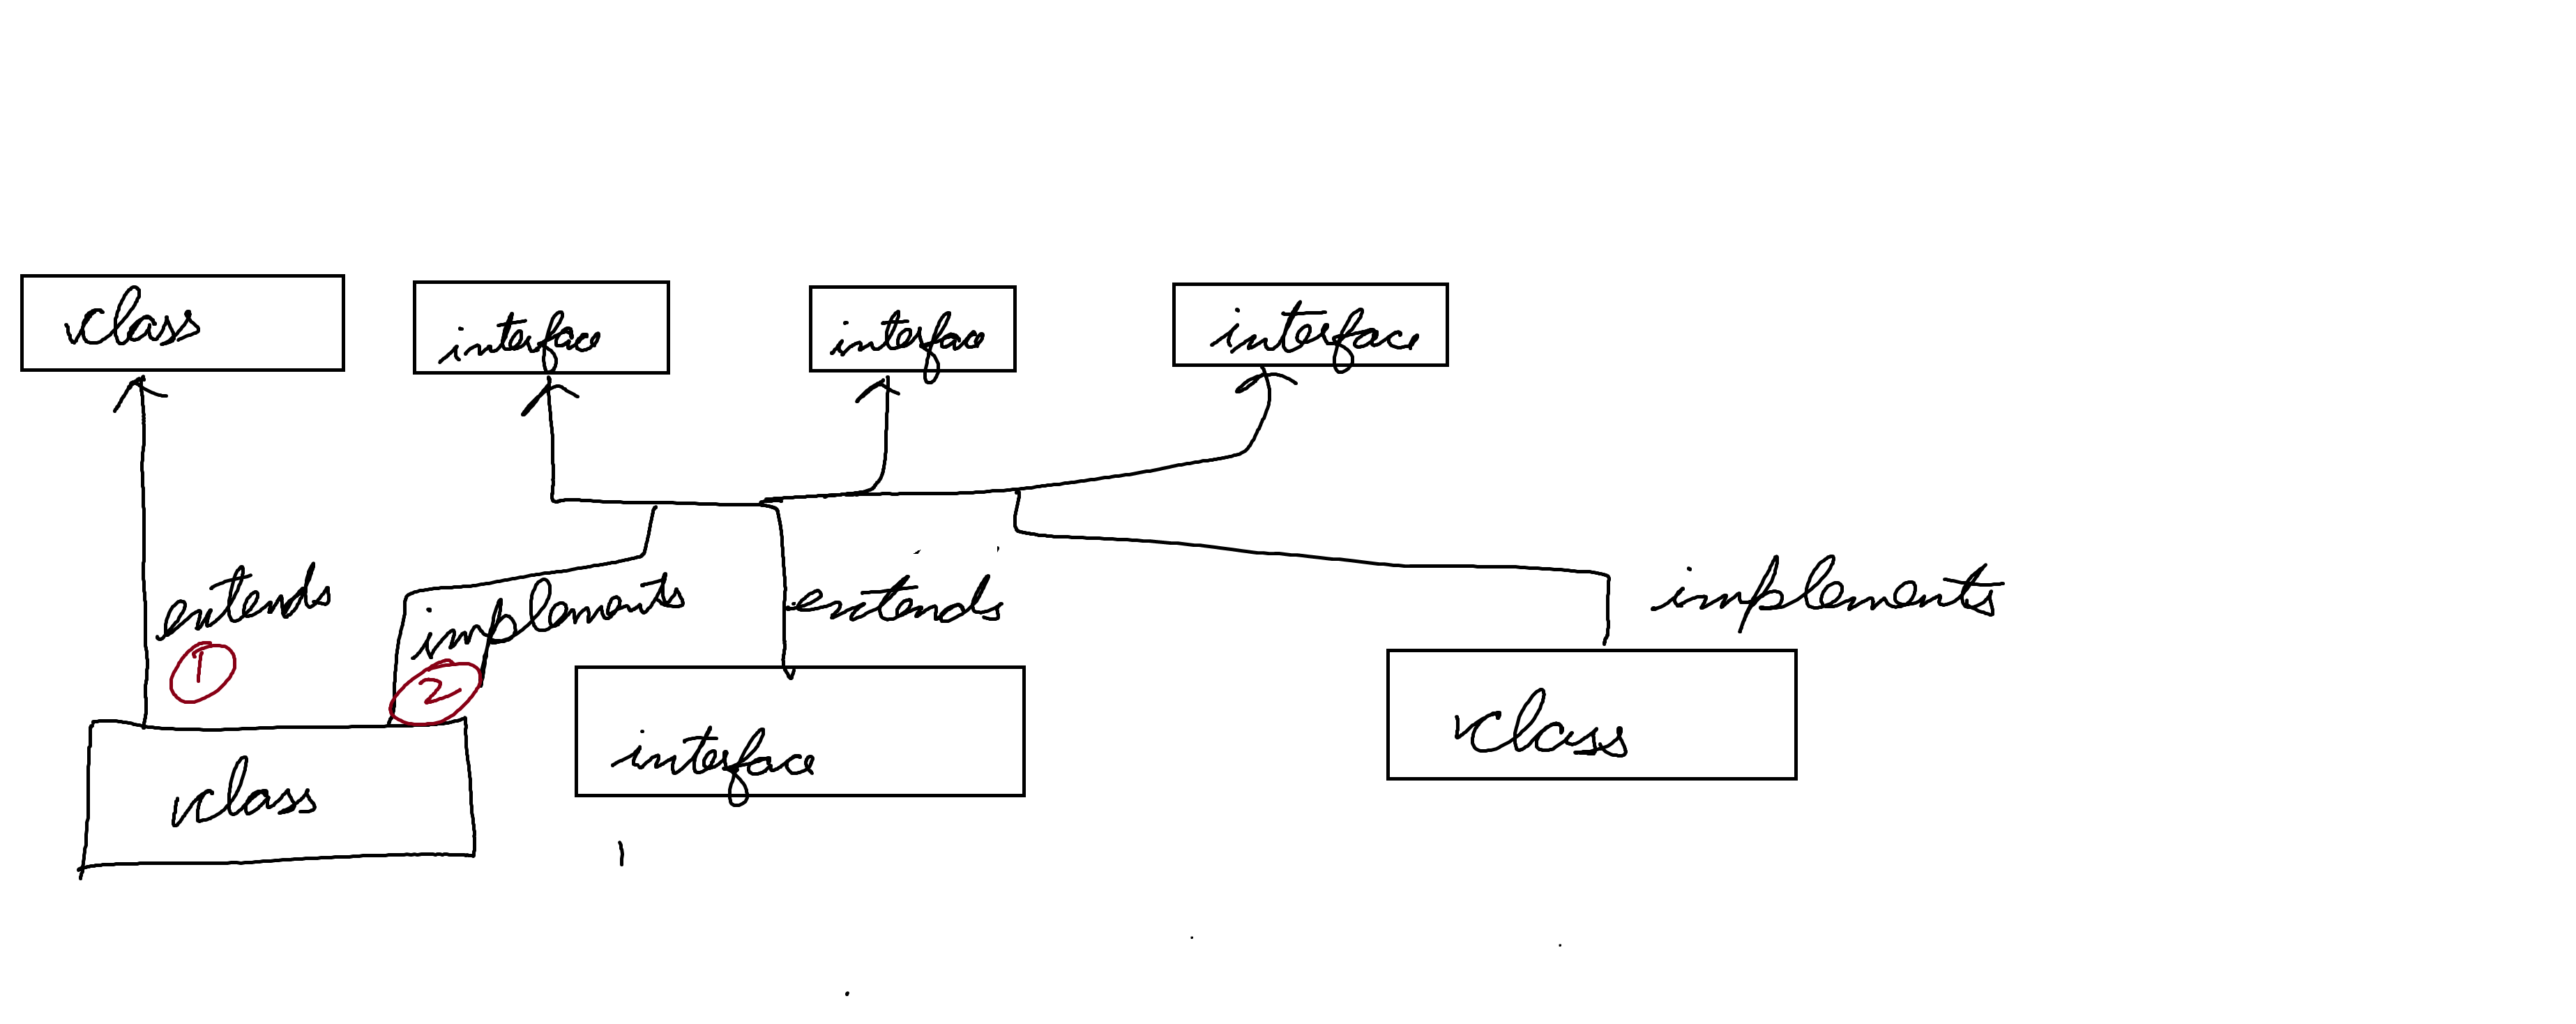 class
interface
interface
interface
extends
implements
extends
implements
1
2
class
interface
class